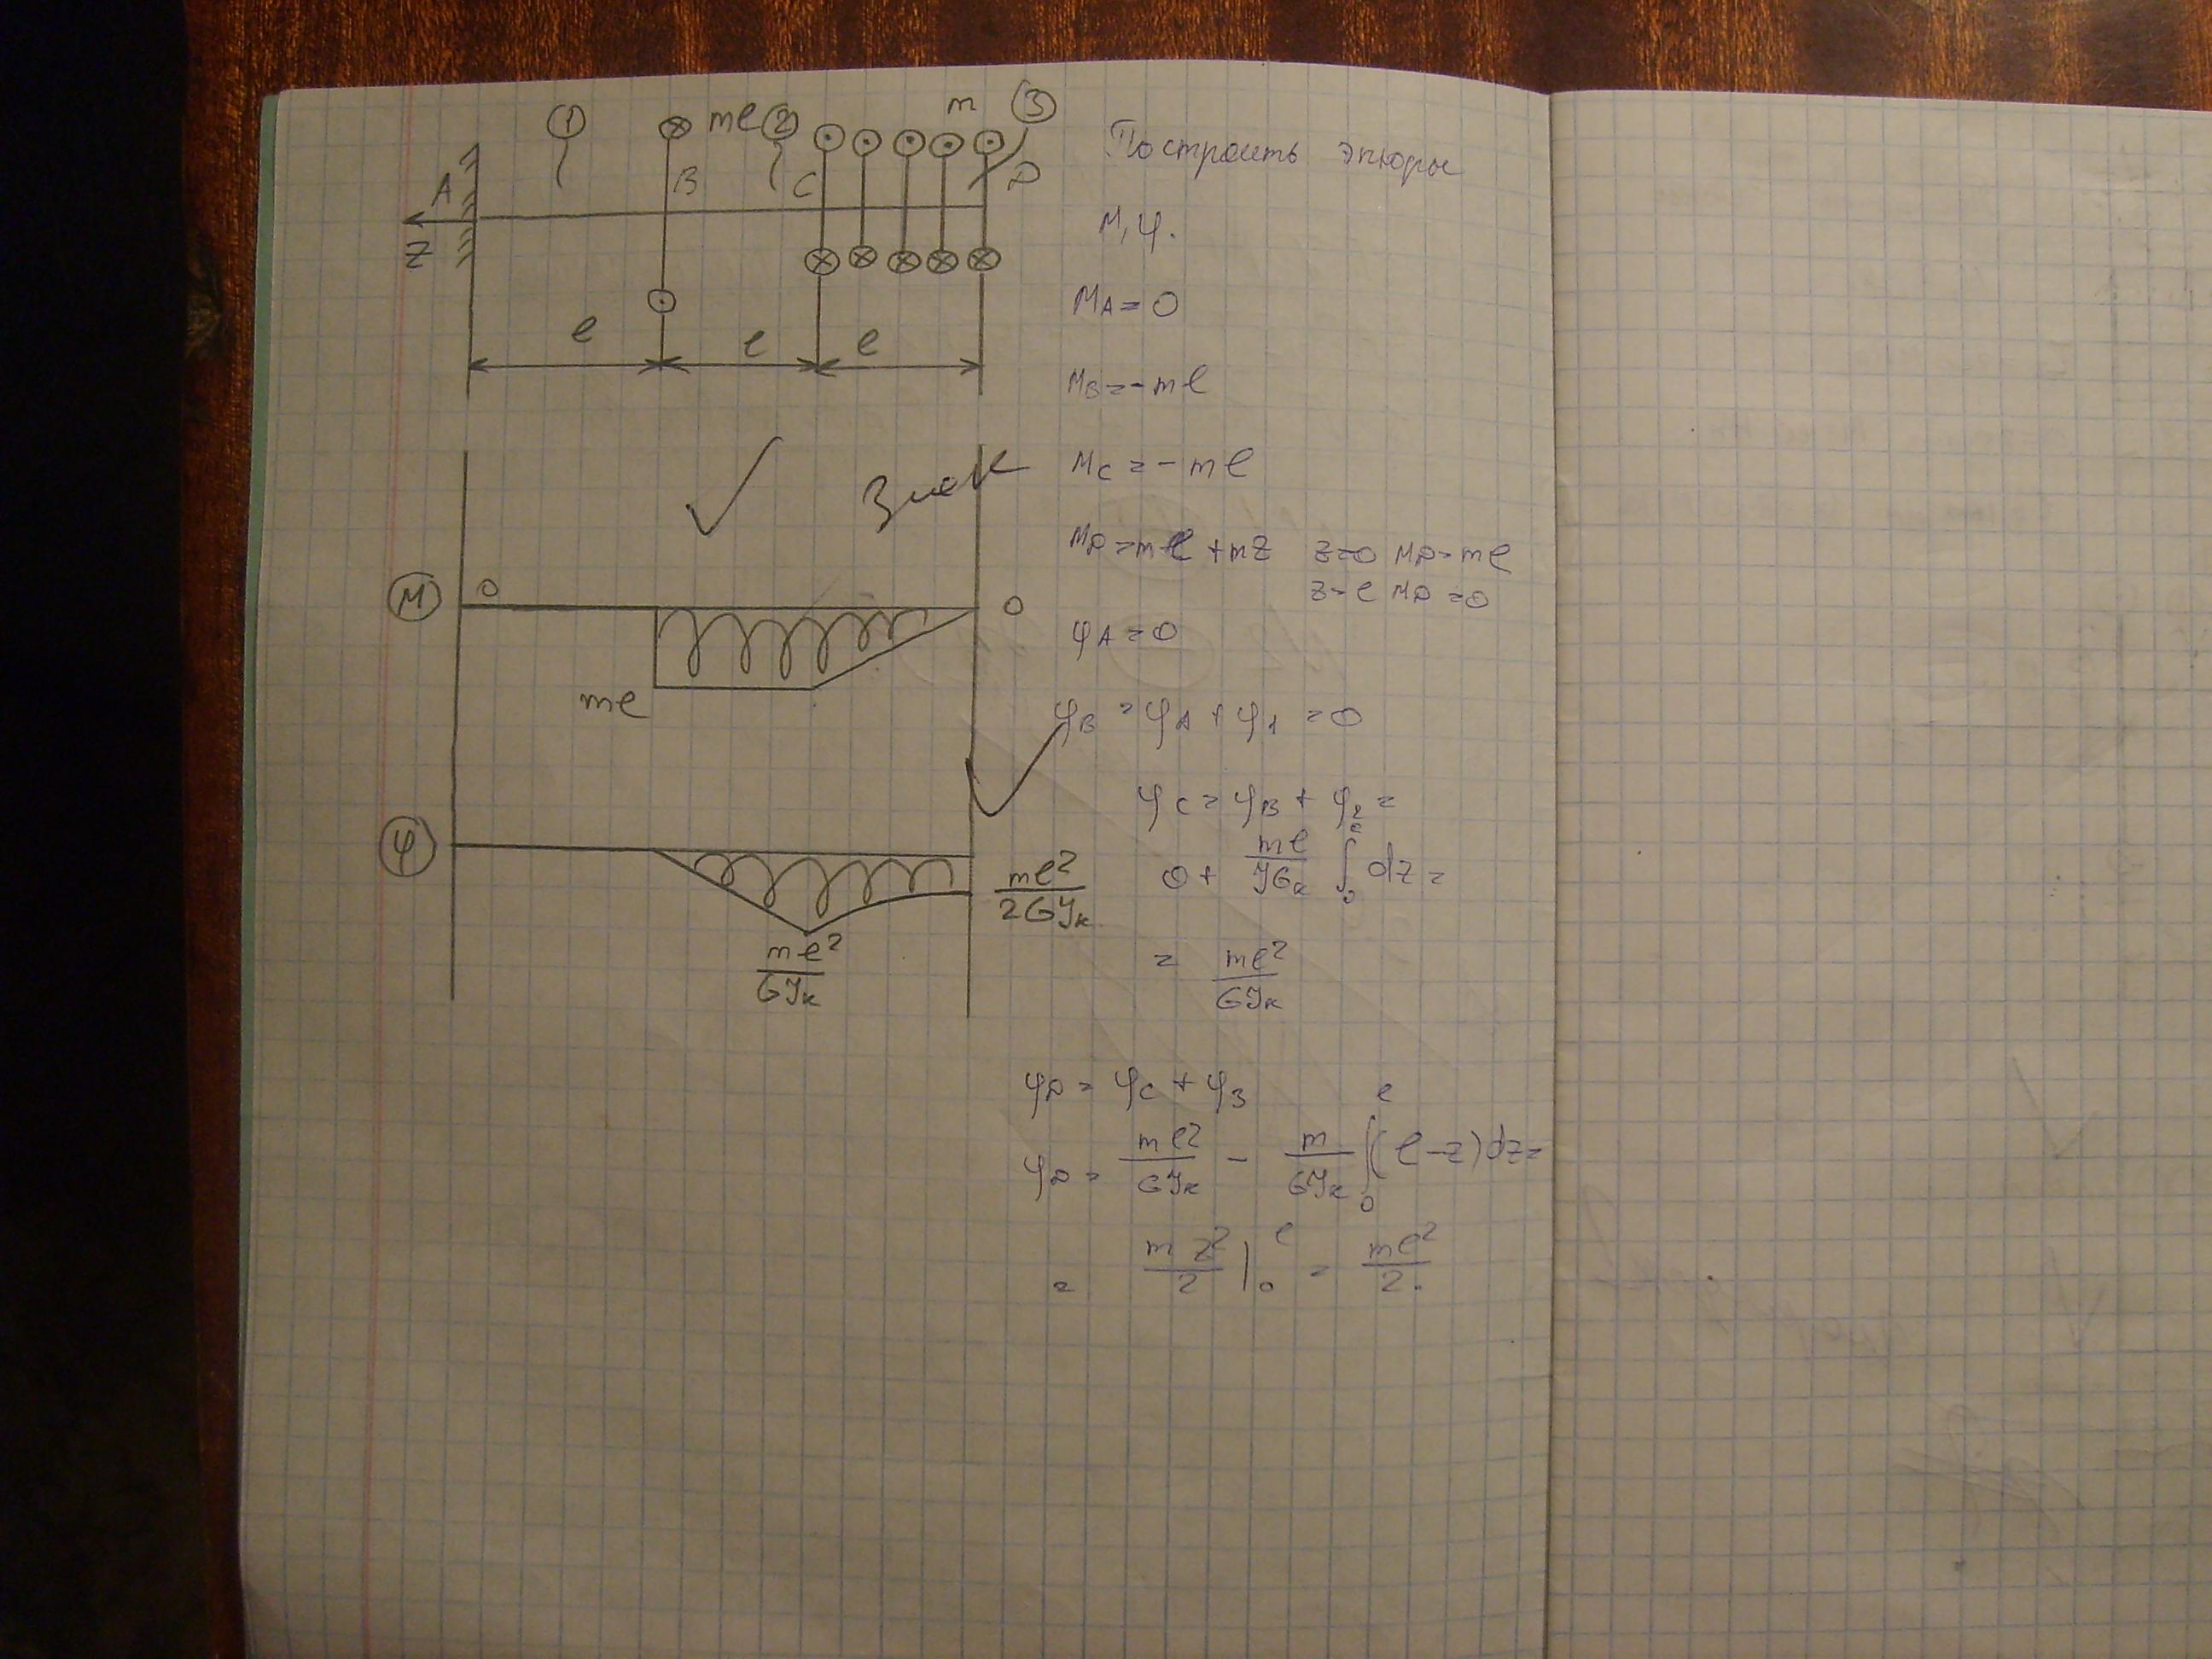 ① ml ② m ③
A B C D
Z
l l l
Построить эпюры
M, φ.
MA = 0
MB = - ml
MC = - ml
Знак
MD = ml + mz z=0 MD = ml
z = l MD = 0
M 0 0
ml
φA = 0
φB = φA + φ1 = 0
φC = φB + φ2 =
0 + ml/JGк ∫₀ˡ dz =
= ml²/GJк
φ
ml²/GJк
ml²/2GJк
φD = φC + φ3
φD = ml²/GJк - m/GJк ∫₀ˡ (l - z) dz =
= m z²/2 |₀ˡ = ml²/2.